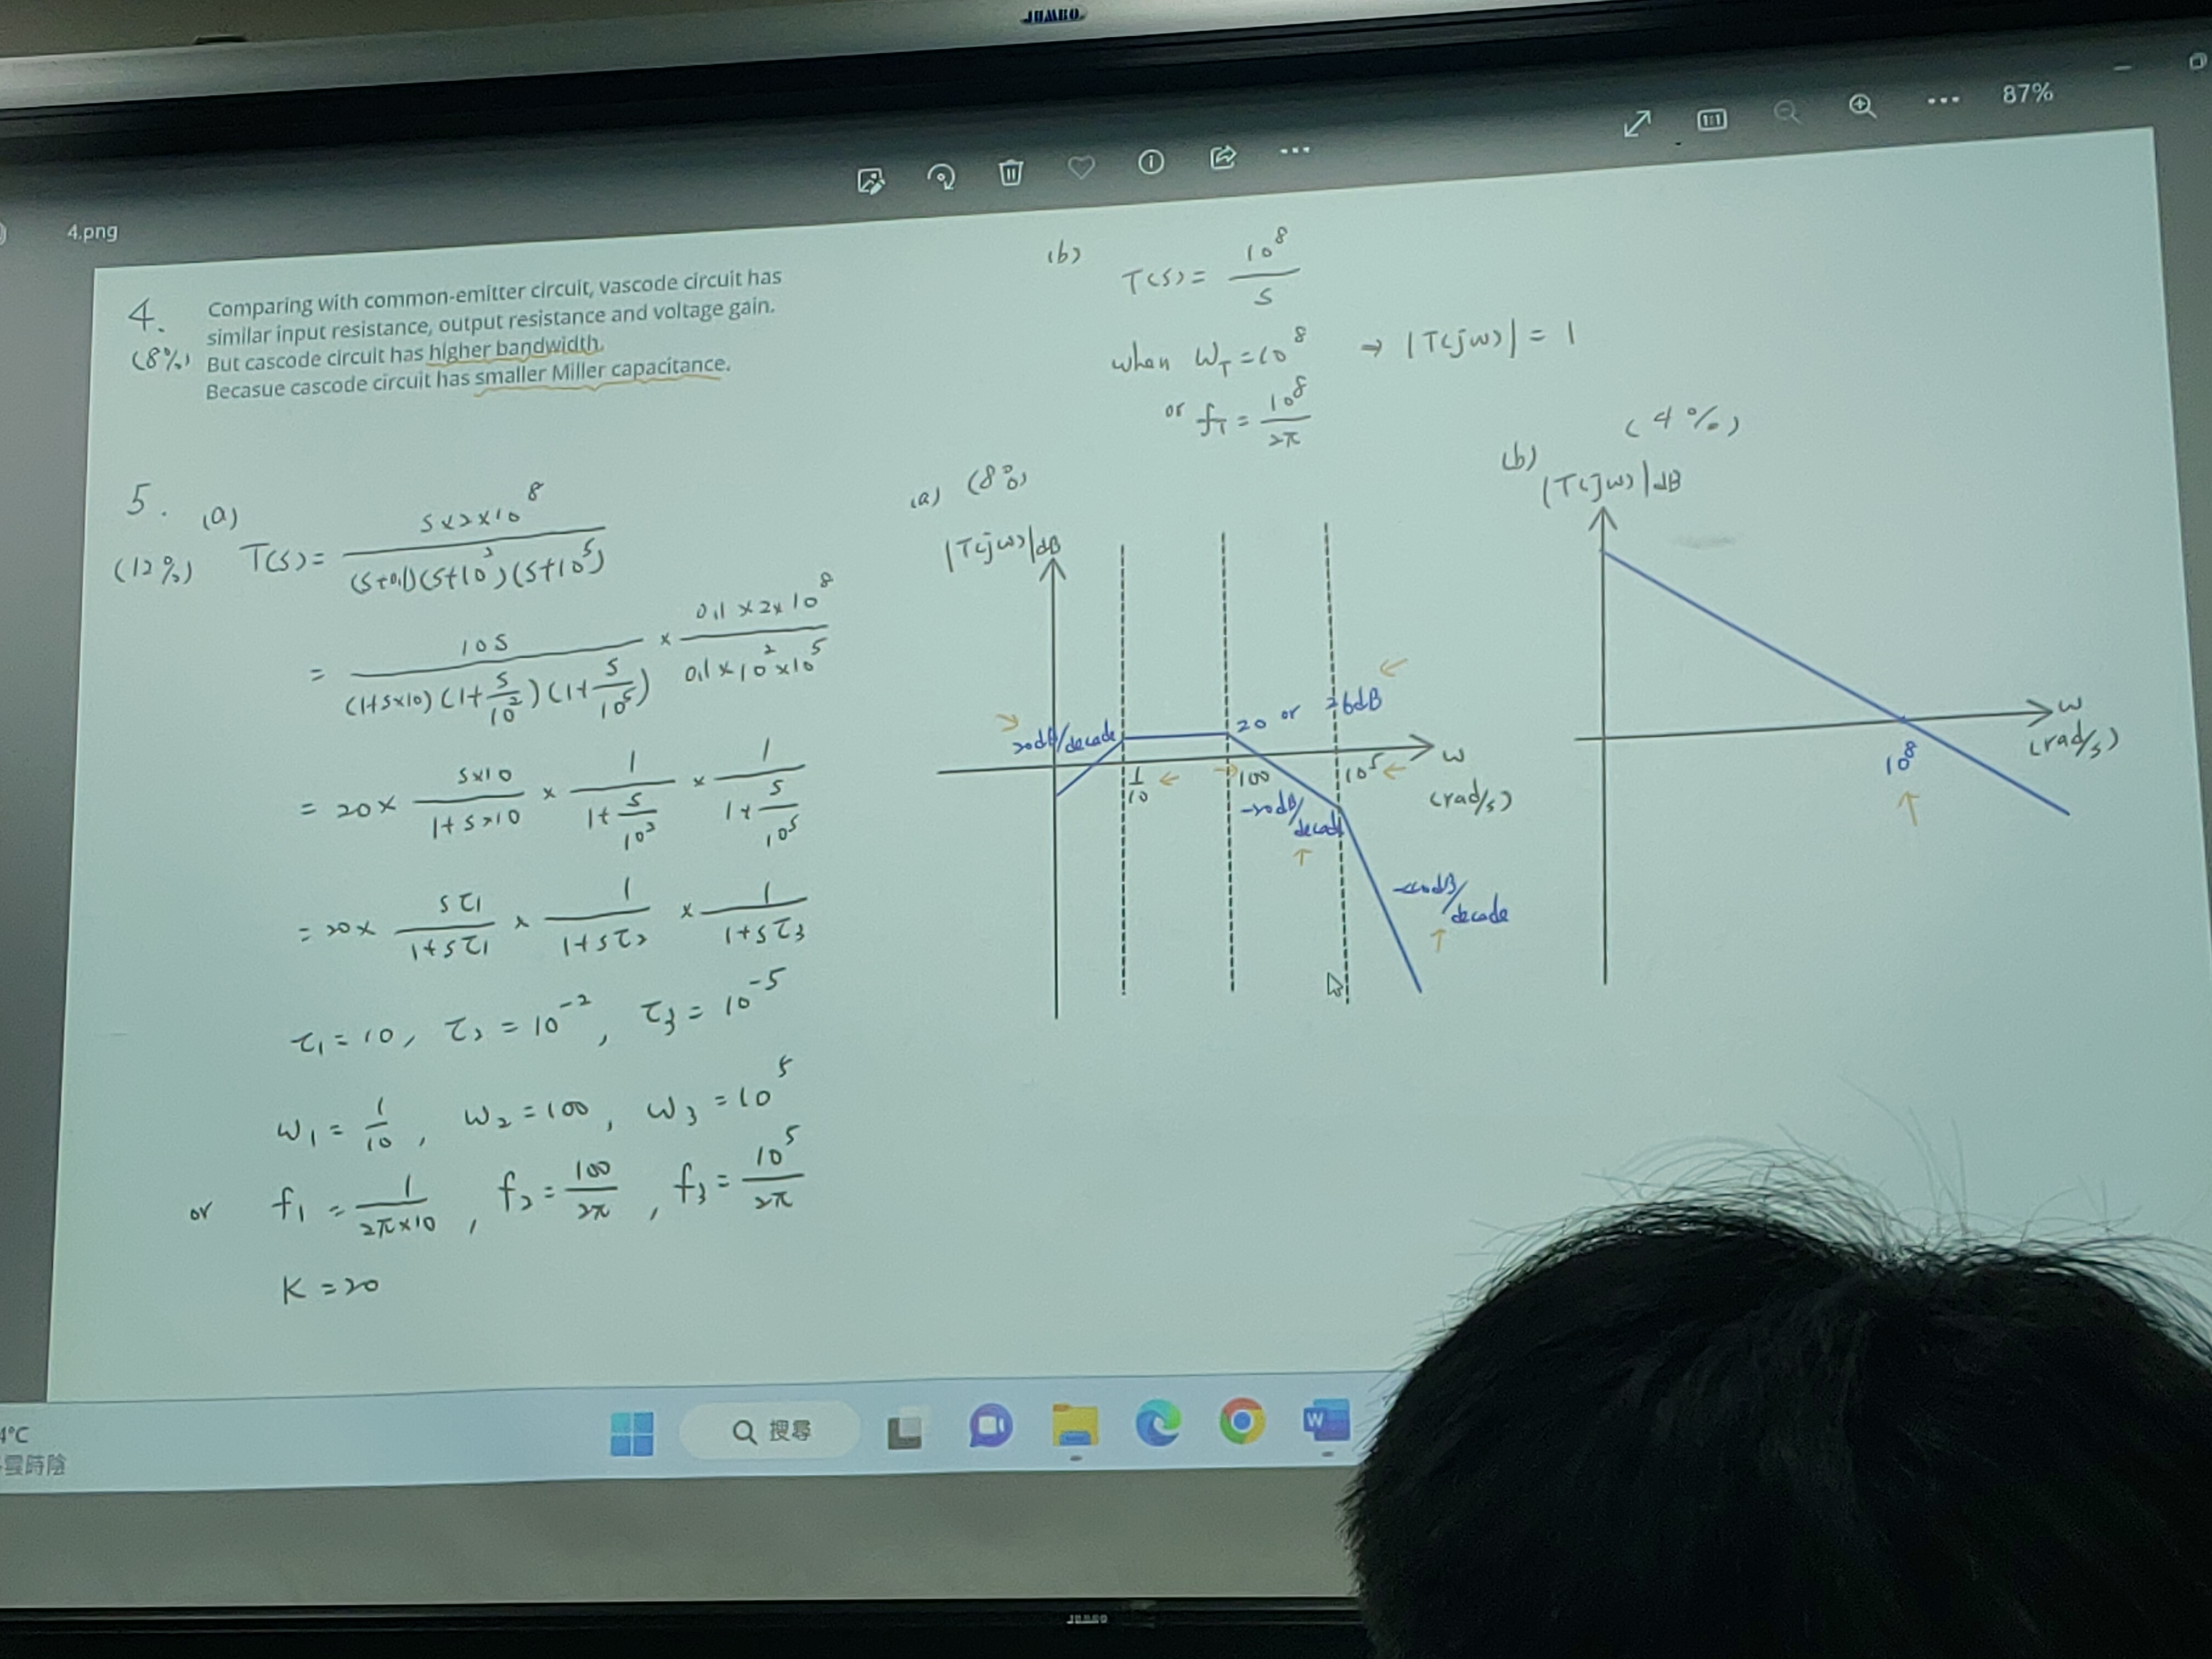 JUMBO
87%
4.png
4.
(8%)
Comparing with common-emitter circuit, vascode circuit has
similar input resistance, output resistance and voltage gain.
But cascode circuit has higher bandwidth.
Becasue cascode circuit has smaller Miller capacitance.
5.
(12%)
(a)
T(s) = s×2×10^8 / (s+0.1)(s+10^2)(s+10^5)
= 10s / (1+s×10)(1+s/10^2)(1+s/10^5) × 0.1×2×10^8 / 0.1×10^2×10^5
= 20 × s×10 / 1+s×10 × 1 / 1+s/10^2 × 1 / 1+s/10^5
= 20 × sτ1 / 1+sτ1 × 1 / 1+sτ2 × 1 / 1+sτ3
τ1 = 10, τ2 = 10^-2, τ3 = 10^-5
ω1 = 1/10, ω2 = 100, ω3 = 10^5
or f1 = 1/2π×10, f2 = 100/2π, f3 = 10^5/2π
K = 20
(b)
T(s) = 10^8 / s
when ωT = 10^8 → |T(jω)| = 1
or fT = 10^8 / 2π
(a) (8%)
|T(jω)|dB
20dB/decade
20 or 26dB
1/10
100
10^5
ω
(rad/s)
-20dB/
decade
-40dB/
decade
(4%)
(b)
|T(jω)|dB
ω
(rad/s)
10^8
4°C
雲時陰
搜尋
W
JUMBO